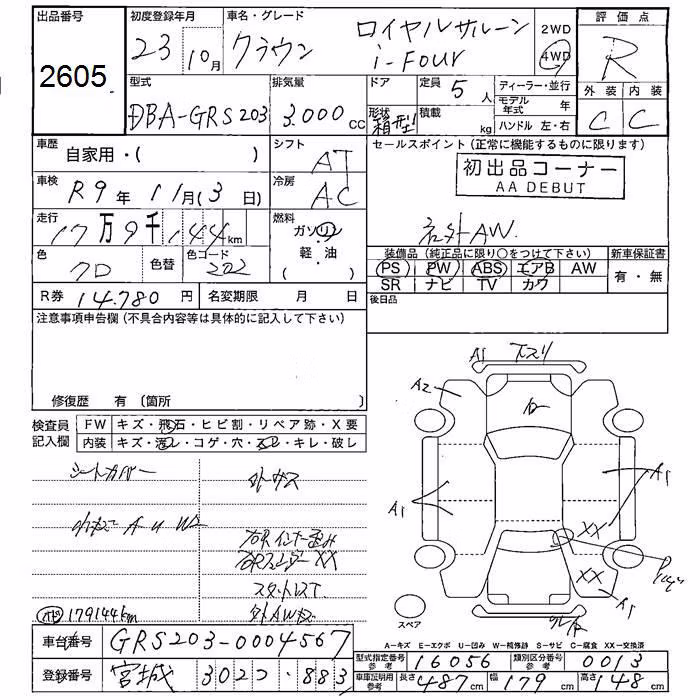 出品番号 初度登録年月 車名・グレード 2WD 評価点
2605 23 10月 クラウン ロイヤルサルーン i-Four 4WD R
型式 排気量 ドア 定員 5人 ディーラー・並行 外装 内装
DBA-GRS203 3.000 CC 形状 箱型 積載 kg モデル年式 年 C C
ハンドル 左・右
車歴 自家用・( ) シフト AT セールスポイント (正常に機能するものに限ります)
初出品コーナー
AA DEBUT
車検 R9年 11月(3日) 冷房 AC
走行 17万9千144km 燃料 ガソリン 軽・油 社外AW.
色 クロ 色替 色コード 202 装備品 (純正品に限り○をつけて下さい) 新車保証書
PS PW ABS エアB AW 有・無
SR ナビ TV カワ
R券 14.780円 名変期限 月 日 後日品
注意事項申告欄 (不具合内容等は具体的に記入して下さい)
修復歴 有 (箇所 )
検査員記入欄 FW キズ・飛石・ヒビ割・リペア跡・X要
内装 キズ・汚レ・コゲ・穴・スレ・キレ・破レ
シートカバー
右Rインナー歪み
右Rフェンダー XX
スタットレスT.
メーター 179144km 外AWキズ
A1 下スリ
A2
A1
A1
XX
XX
A1
スペア
A－キズ E－エクボ U－凹み W－補修跡 S－サビ C－腐食 XX－交換済
車台番号 GRS203-0004567
型式指定番号 参考 16056 類別区分番号 参考 0013
登録番号 宮城 302 つ ・883
車庫証明用 参考 長さ 487cm 幅 179cm 高さ 148cm